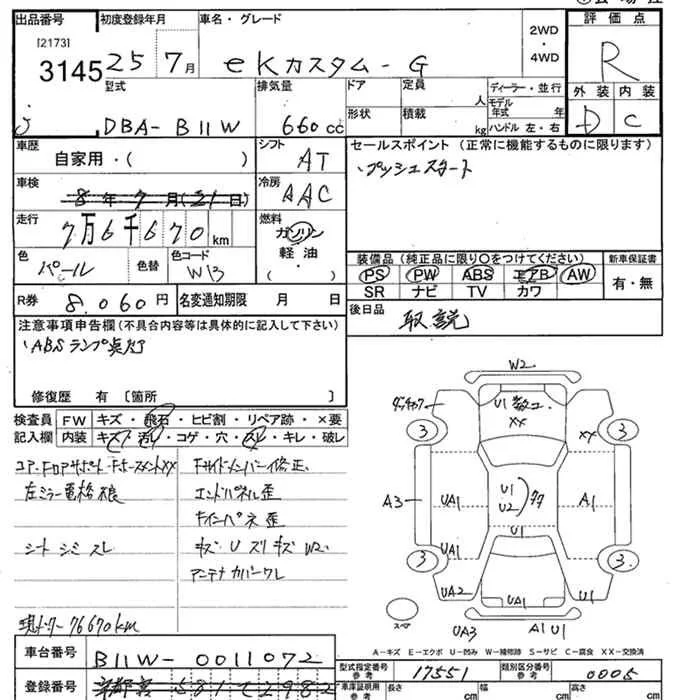 出品番号 初度登録年月 車名・グレード 2WD ・ 4WD 評価点
[2173]
3145 25年7月 eKカスタム-G R
型式 排気量 ドア 定員 人 ディーラー・並行 外装 内装
形状 積載 kg モデル年式 年
DBA-B11W 660cc ハンドル 左・右 D C
車歴 シフト セールスポイント(正常に機能するものに限ります)
自家用・( ) AT ・プッシュスタート
車検 冷房
8年7月(21日) AAC
走行 7万6千670km 燃料 ガソリン
軽油
・( )
色 パール 色替 色コード WB
装備品(純正品に限り○をつけてください) 新車保証書
PS PW ABS エアB AW 有・無
SR ナビ TV カワ
R券 8,060円 名変通知期限 月 日
後日品 取説
注意事項申告欄(不具合内容等は具体的に記入して下さい)
・ABSランプ点灯
修復歴 有 [箇所 ]
検査員 FW キズ・飛石・ヒビ割・リペア跡・×要
記入欄 内装 キズ・汚レ・コゲ・穴・スレ・キレ・破レ
コア・Fロアサポート・ XX Fサイドメンバー修正
左ミラー電格 エンドパネル歪
インパネ歪
シート シミ スレ キズ U ズリキズ W2
アンテナカバーワレ
現メーター 76670km
W2
U1 数コ
XX
3 3
XX
A3 UA1 U1 U2 A1
U1
UA1
3 3
UA2 UA1 U1
スペア
UA3 A1 U1
A-キズ E-エクボ U-凹み W-補修跡 S-サビ C-腐食 XX-交換済
車台番号 B11W-0011072
型式指定番号 参考 17551 類別区分番号 参考 0005
登録番号 581 2982
車庫証明用 参考 長さ cm 幅 cm 高さ cm